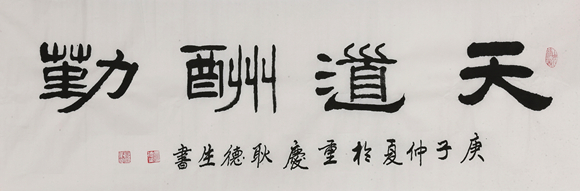 天道酬勤
庚子仲夏於重慶耿德生書